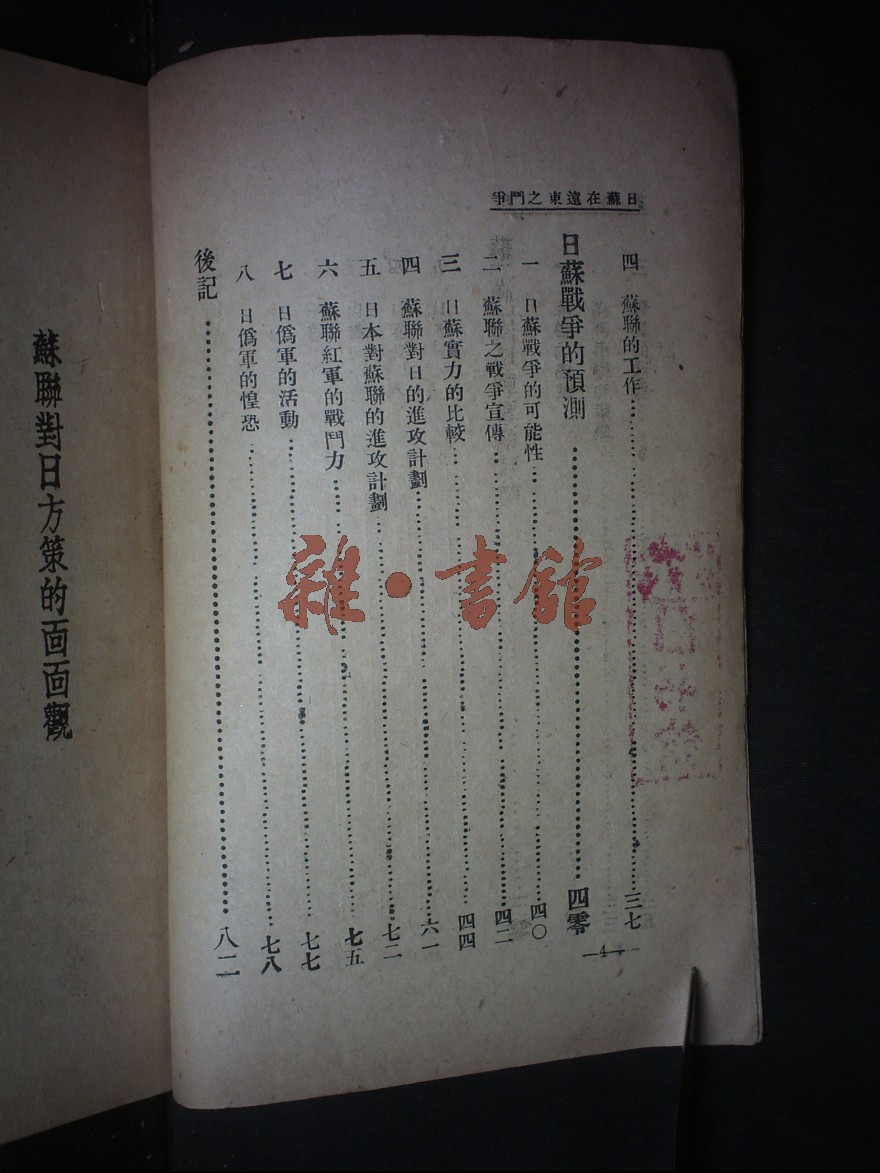 日蘇在遠東之鬥爭
四 蘇聯的工作……三七
日蘇戰爭的預測……四零
一 日蘇戰爭的可能性……四〇
二 蘇聯之戰爭宣傳……四二
三 日蘇實力的比較……四四
四 蘇聯對日的進攻計劃……六一
五 日本對蘇聯的進攻計劃……七二
六 蘇聯紅軍的戰鬥力……七五
七 日僞軍的活動……七七
八 日僞軍的惶恐……七八
後記……八二
—4—
蘇聯對日方策的面面觀
雜·書館